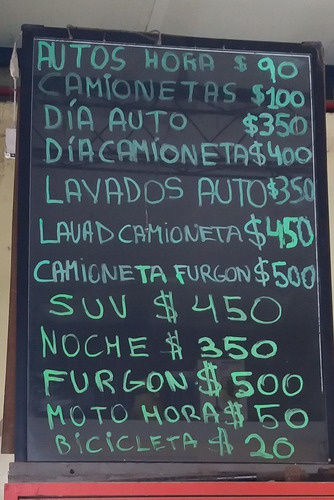 AUTOS HORA $ 90
CAMIONETAS $100
DÍA AUTO $350
DÍA CAMÍONETA $400
LAVADOS AUTO $350
LAVAD CAMIONETA $450
CAMIONETA FURGON $500
SUV $ 450
NOCHE $ 350
FURGON $ 500
MOTO HORA $ 50
BICICLETA $ 20